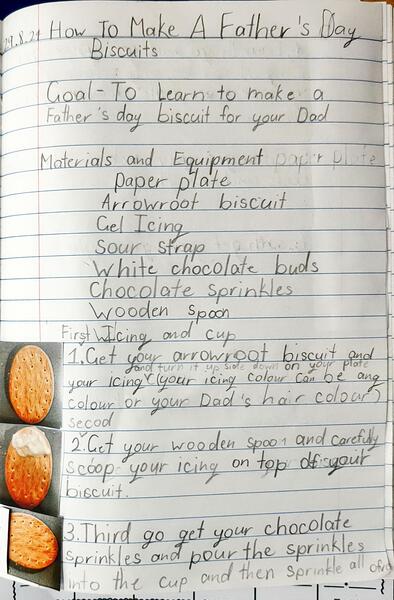 29.8.21 How To Make A Father's Day
Biscuits
Goal-To Learn to make a
Father's day biscuit for your Dad
Materials and Equipment paper plate
paper plate
Arrowroot biscuit
Gel Icing
Sour strap
White chocolate buds
Chocolate sprinkles
Wooden spoon
First Icing and cup
1. Get your arrowroot biscuit and
and turn it up side down on your plate
your icing (your icing colour can be any
colour or your Dad's hair colour)
secod
2. Get your wooden spoon and carefully
scoop your icing on top of your
biscuit.
3. Third go get your chocolate
sprinkles and pour the sprinkles
into the cup and then sprinkle all